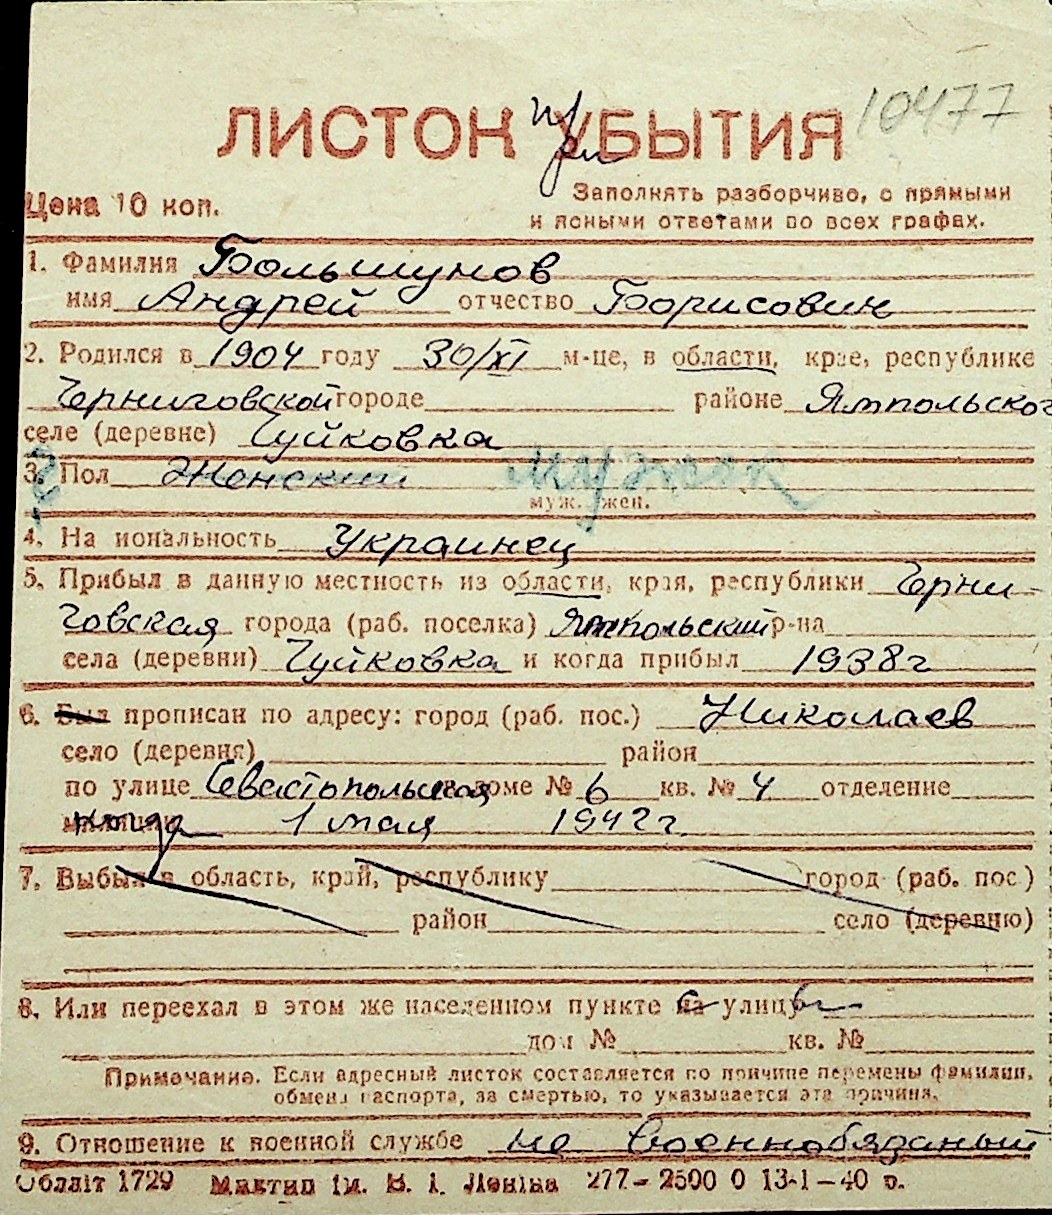 10477
ЛИСТОК при УБЫТИЯ
Цена 10 коп.
Заполнять разборчиво, с прямыми
и ясными ответами во всех графах.
1. Фамилия Большунов
имя Андрей отчество Борисович
2. Родился в 1904 году 30/XI м-це, в области, крае, республике
Черниговской городе районе Ямпольског
селе (деревне) Чуйковка
3. Пол Женский мужск
муж. жен.
4. На иональность Украинец
5. Прибыл в данную местность из области, края, республики Черни-
говская города (раб. поселка) Ямпольский р-на
села (деревни) Чуйковка и когда прибыл 1938г
6. Был прописан по адресу: город (раб. пос.) Николаев
село (деревня) район
по улице Севастопольская доме № 6 кв. № 4 отделение
когда 1 мая 1942г.
7. Выбыл в область, край, республику город (раб. пос)
район село (деревню)
8. Или переехал в этом же населенном пункте с улицы
дом № кв. №
Примечание. Если адресный листок составляется по причине перемены фамилии,
обмена паспорта, за смертью, то указывается эта причина.
9. Отношение к военной службе не военнобязаный
Обліт 1729 Миктип ім. В. І. Леніна 277-2500 0 13-1-40 р.